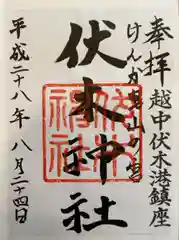 奉拝
越中伏木港鎮座
けんか曳山の宮
伏木神社
伏木神社
平成二十八年八月二十四日